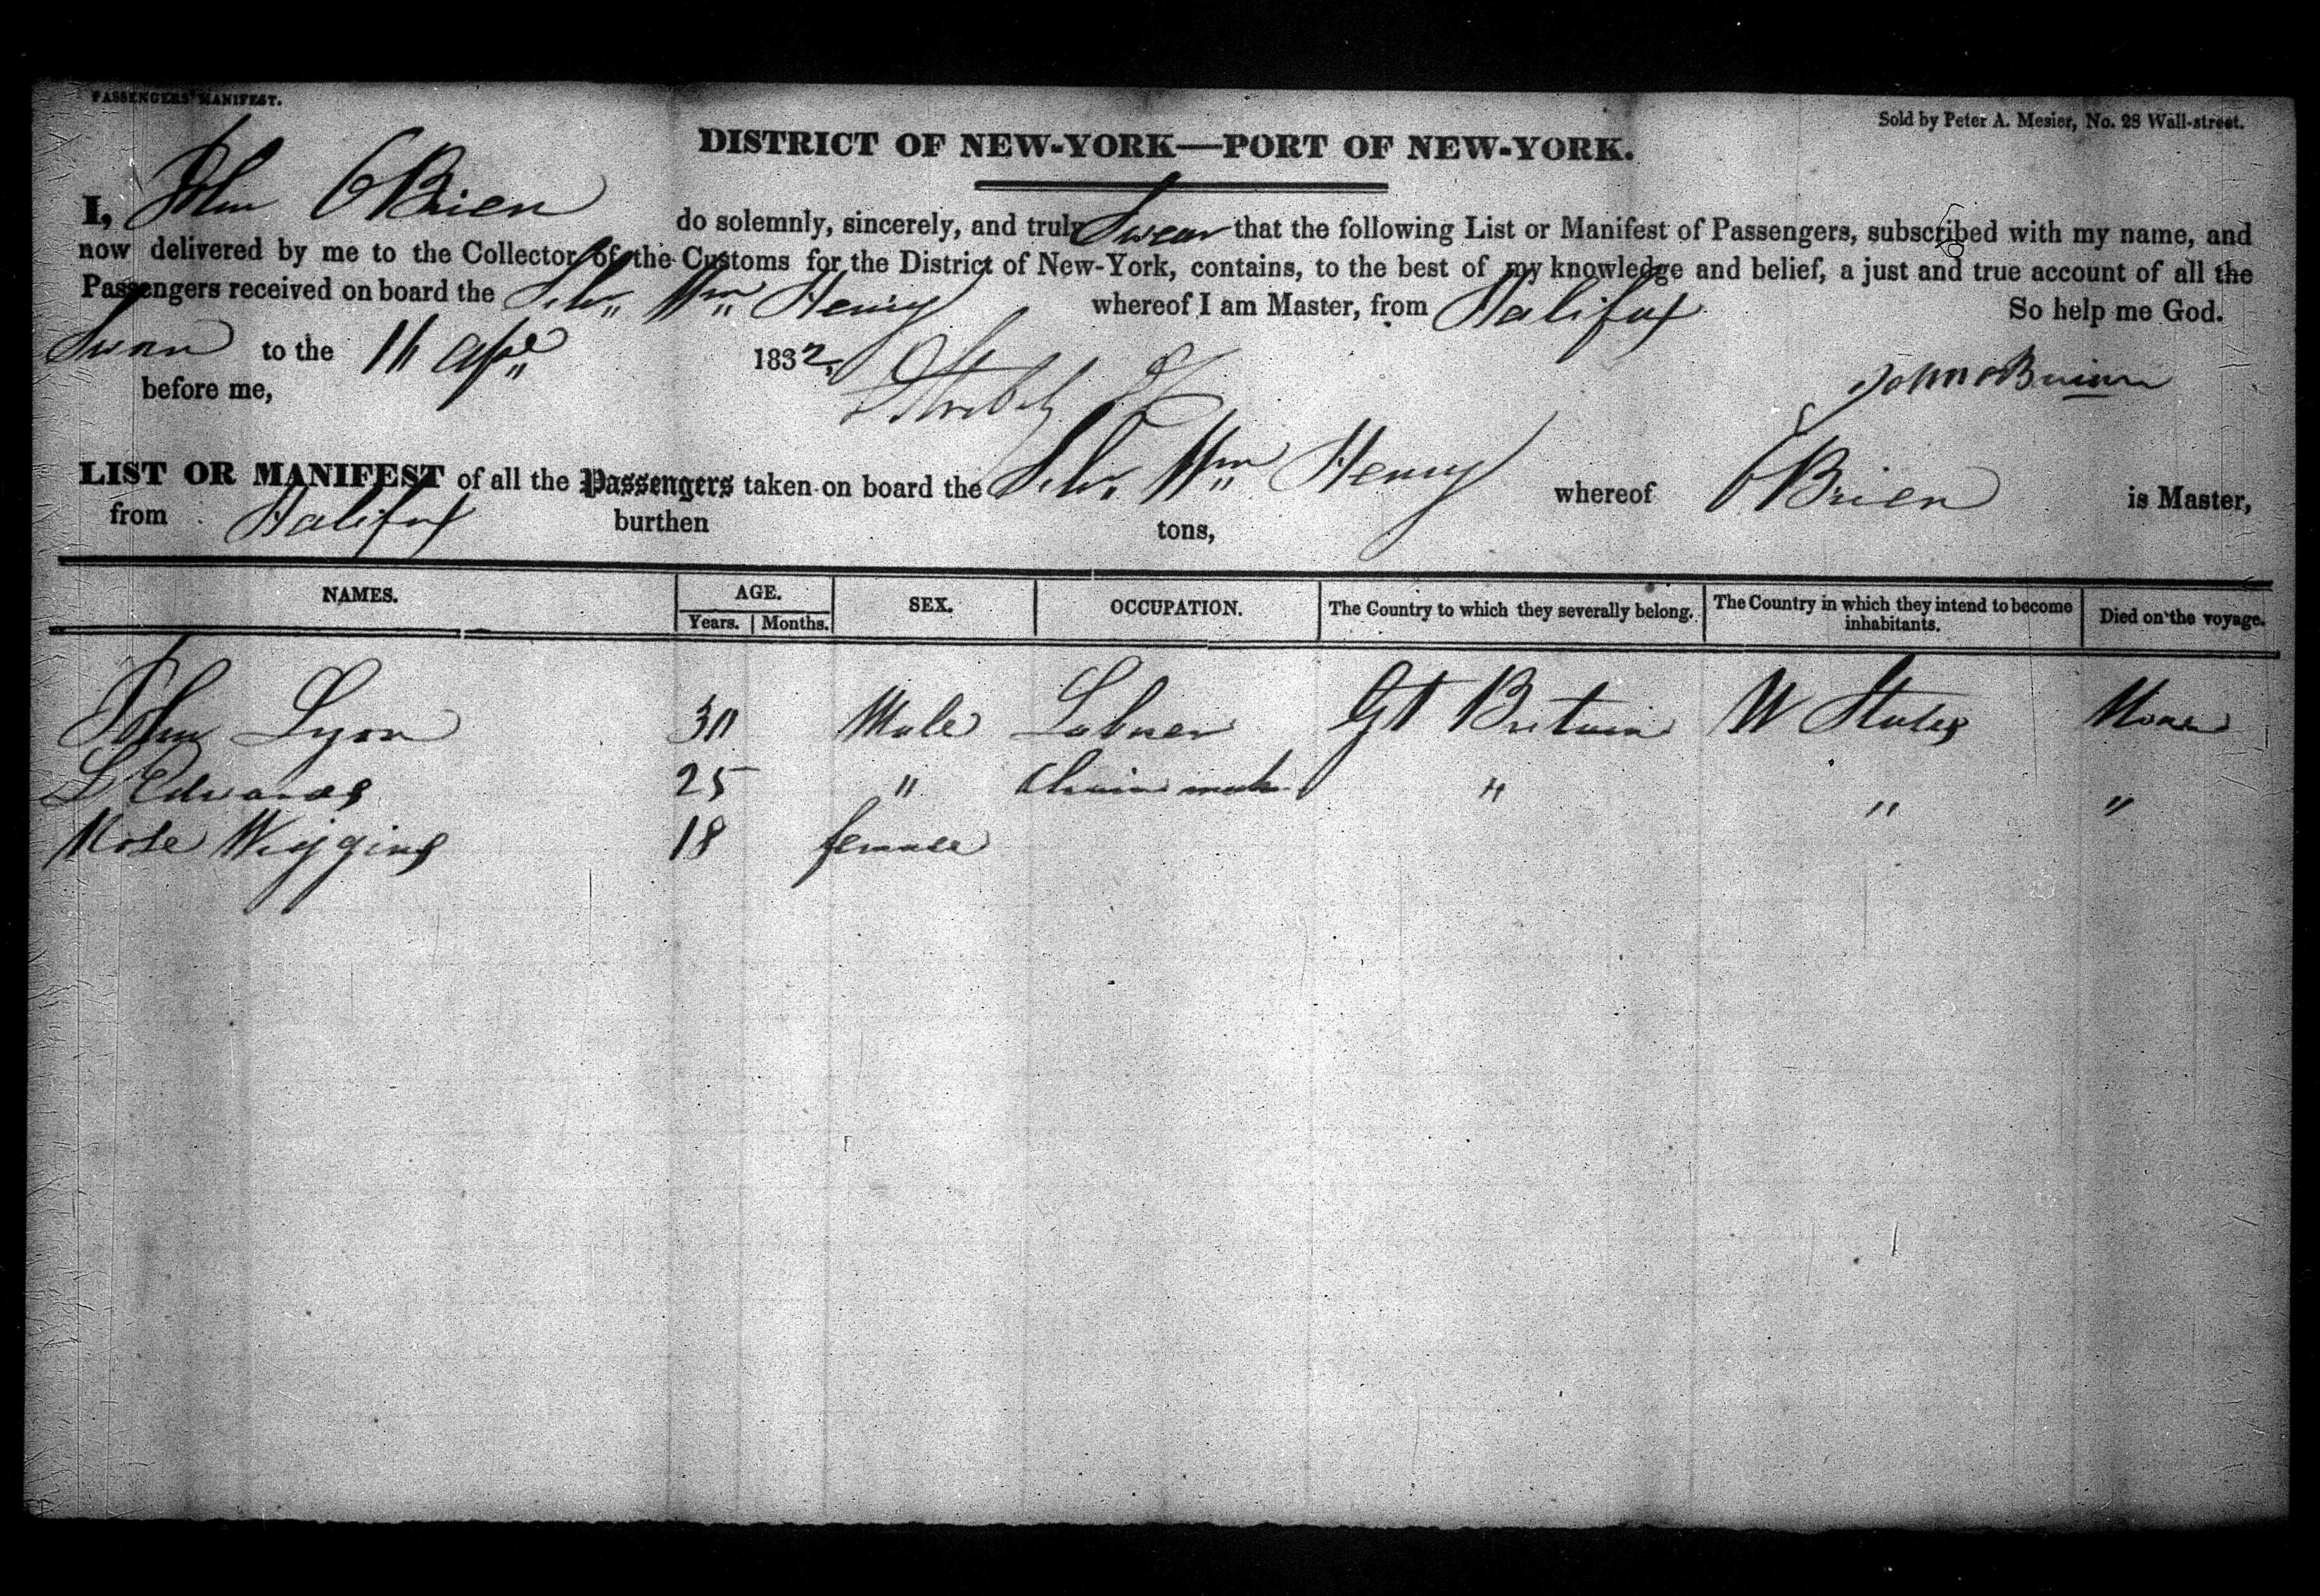 PASSENGERS' MANIFEST.
Sold by Peter A. Mesier, No. 28 Wall-street.
DISTRICT OF NEW-YORK—PORT OF NEW-YORK.
I, John OBrien do solemnly, sincerely, and truly Swear that the following List or Manifest of Passengers, subscribed with my name, and
now delivered by me to the Collector of the Customs for the District of New-York, contains, to the best of my knowledge and belief, a just and true account of all the
Passengers received on board the Schr Wm Henry whereof I am Master, from Halifax So help me God.
Sworn to the 11 Apl 1832,
before me,
John OBrien
LIST OR MANIFEST of all the Passengers taken on board the Schr Wm Henry whereof OBrien is Master,
from Halifax burthen tons,
NAMES. AGE. SEX. OCCUPATION. The Country to which they severally belong. The Country in which they intend to become inhabitants. Died on the voyage.
Years. Months.
John Lyon 30 Male Labuer Gt Britain U States None
S Edwards 25 " Chair mak " " "
Rose Wiggins 18 female